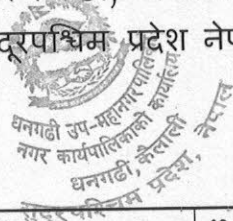 दूरपश्चिम प्रदेश नेप
धनगढी उप-महानगरपालिका
नगर कार्यपालिकाको कार्यालय
धनगढी, कैलाली
सुदूरपश्चिम प्रदेश, नेपाल